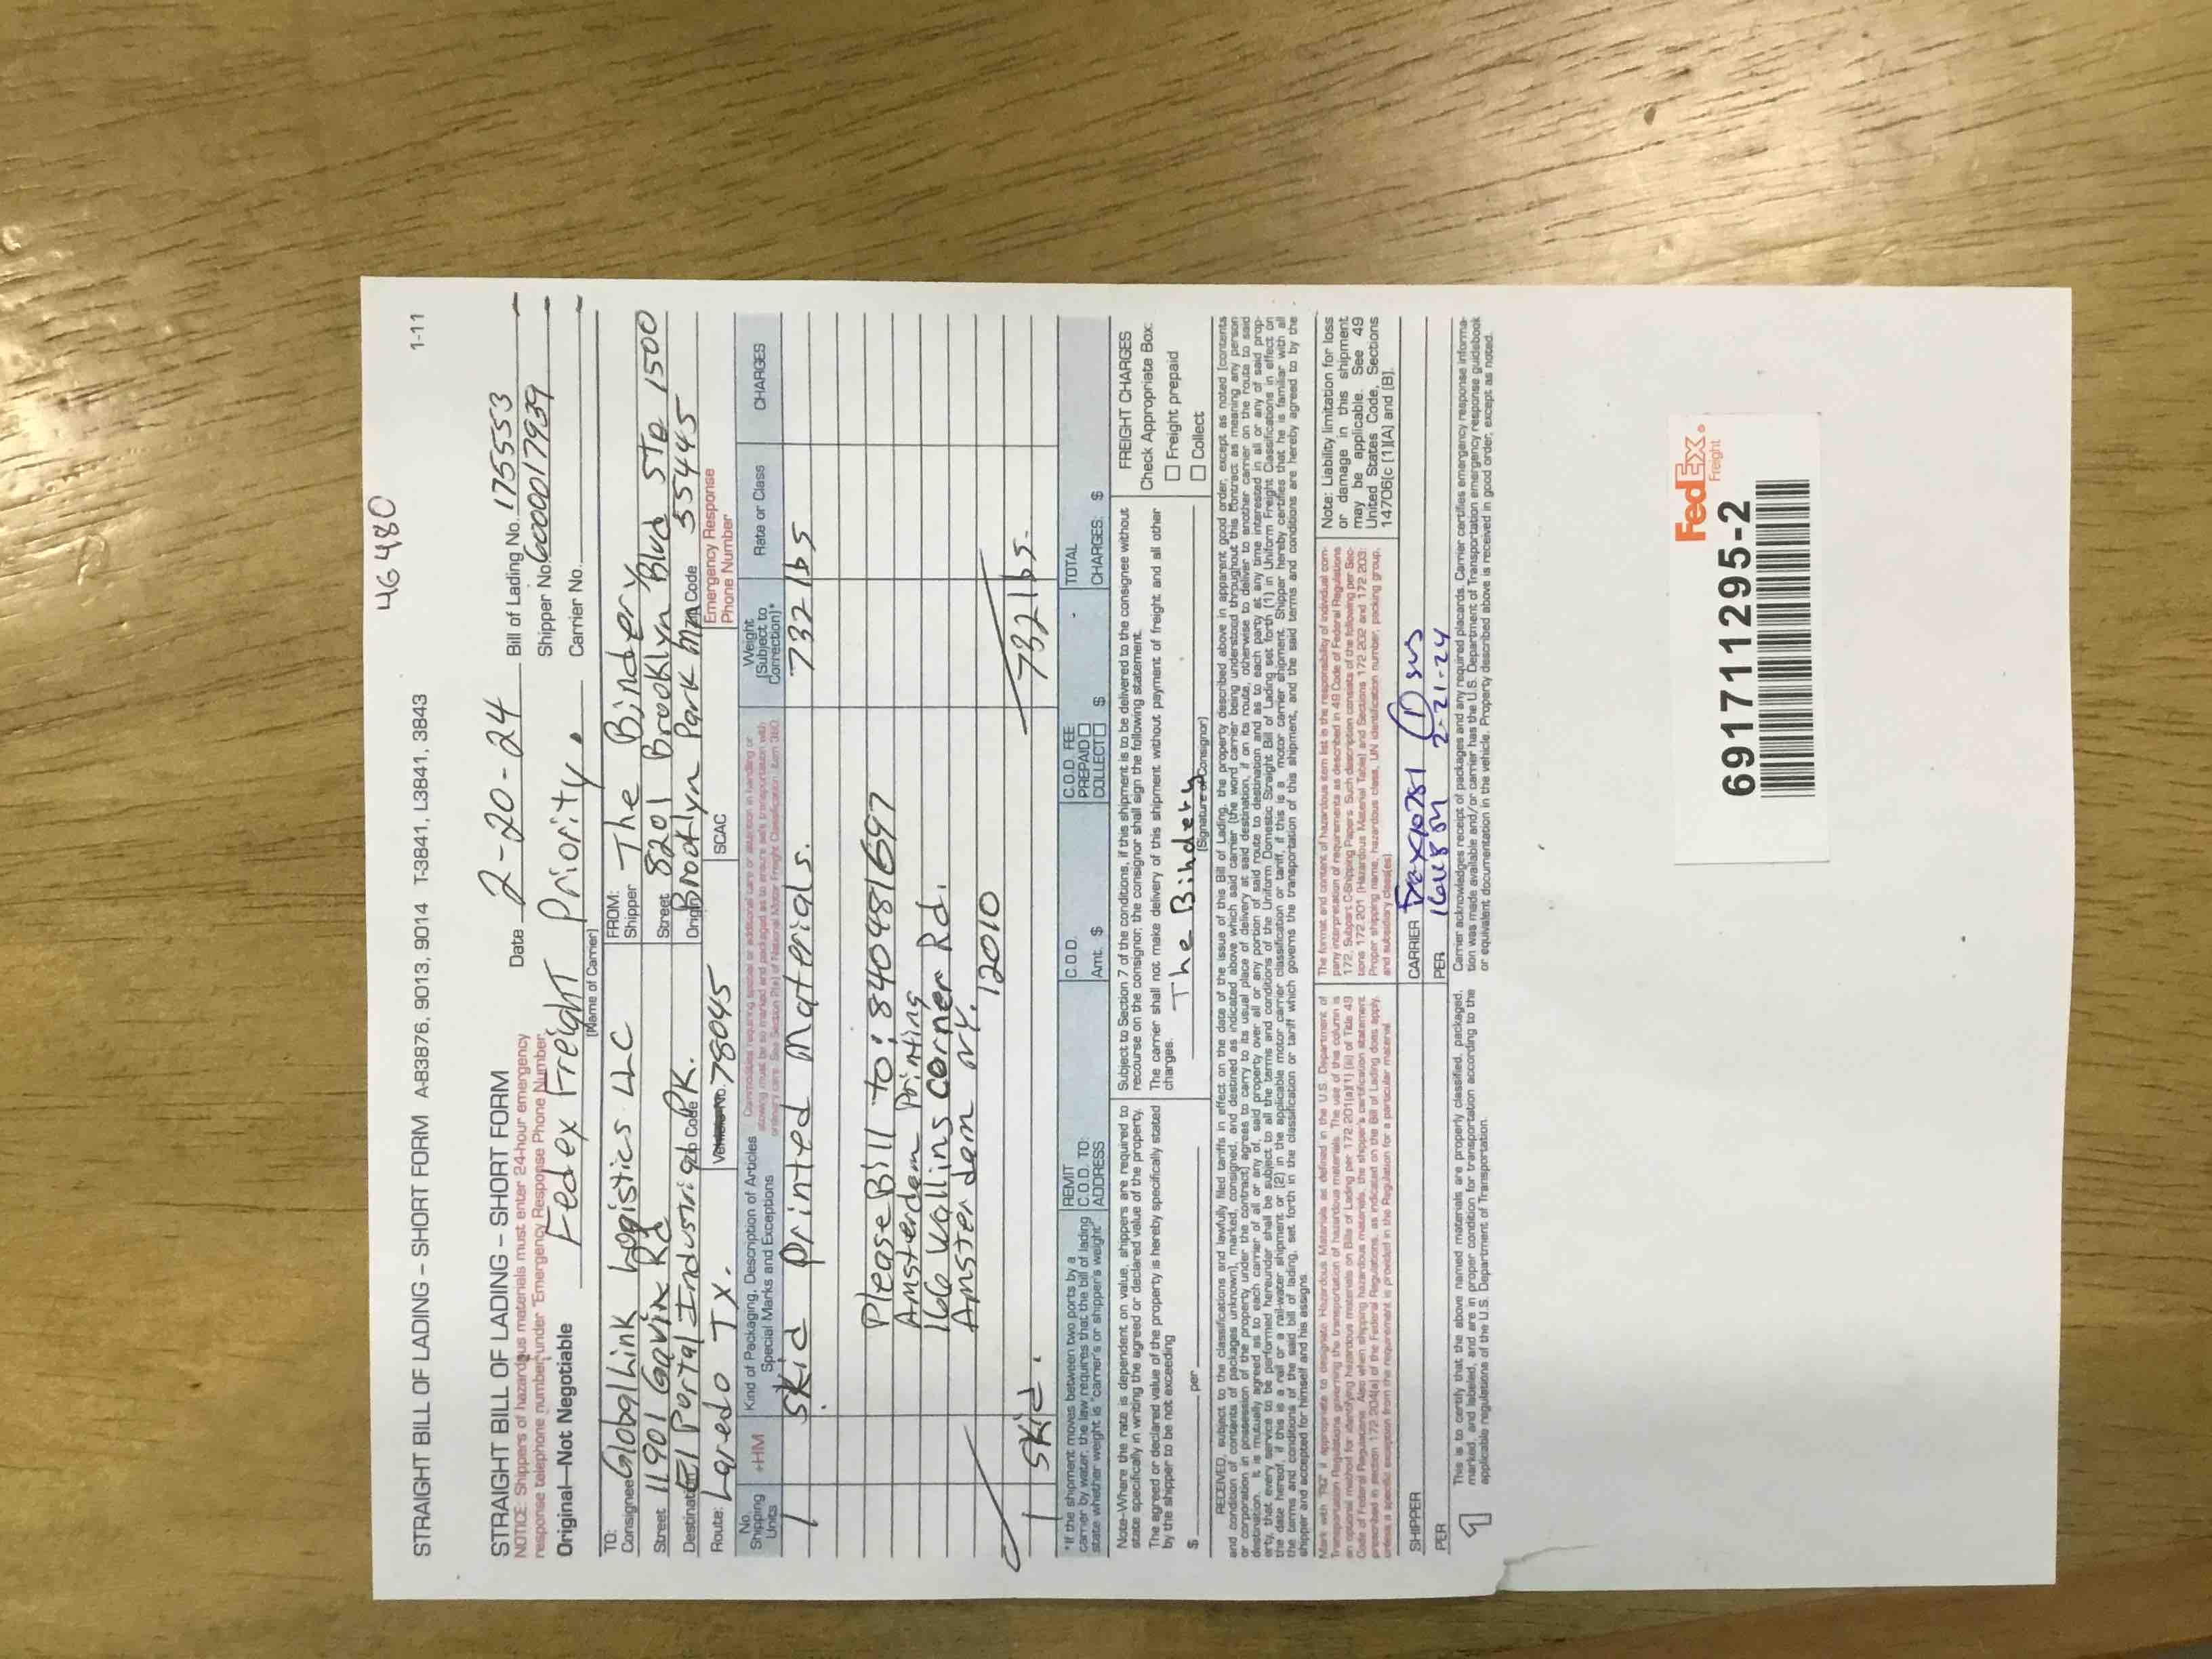 46480
STRAIGHT BILL OF LADING – SHORT FORM AB3876, 9013, 9014 T-3841, L3841, 3843 1-11
STRAIGHT BILL OF LADING – SHORT FORM
NOTICE: Shippers of hazardous materials must enter 24-hour emergency
response telephone number under "Emergency Response Phone Number."
Date 2-20-24
Bill of Lading No. 175553
Shipper No. 6000017939
Original—Not Negotiable
Fedex Freight Priority.
(Name of Carrier)
Carrier No.
TO:
Consignee Global Link Logistics LLC
Street 11901 Gavin Rd
Destination El Portal Industrial Zip Code PK.
Route: Laredo TX. Vehicle No. 78045
FROM:
Shipper The Bindery
Street 8201 Brooklyn Blvd STe 1500
Origin Brooklyn Park Mn Code 55445
SCAC
Emergency Response
Phone Number
No.
Shipping
Units
+HM
Kind of Packaging, Description of Articles
Special Marks and Exceptions
Commodities requiring special or additional care or attention in handling or
stowing must be so marked and packaged as to ensure safe transportation with
ordinary care. See Section 2(e) of National Motor Freight Classification Item 360.
Weight
(Subject to
Correction)*
Rate or Class
CHARGES
1 Skid printed Materials. 732 lbs
Please Bill to: 840481697
Amsterdam Printing
166 Wallins Corner Rd.
Amsterdam NY.
12010
1 Skid. 732 lbs.
*If the shipment moves between two ports by a
carrier by water, the law requires that the bill of lading
state whether weight is "carrier's or shipper's weight"
REMIT
C.O.D. TO:
ADDRESS
C.O.D.
Amt. $
C.O.D. FEE
PREPAID
COLLECT $
TOTAL
CHARGES: $
Note—Where the rate is dependent on value, shippers are required to
state specifically in writing the agreed or declared value of the property.
The agreed or declared value of the property is hereby specifically stated
by the shipper to be not exceeding
$ per
Subject to Section 7 of the conditions, if this shipment is to be delivered to the consignee without
recourse on the consignor, the consignor shall sign the following statement.
The carrier shall not make delivery of this shipment without payment of freight and all other
charges.
The Bindery
(Signature of Consignor)
FREIGHT CHARGES
Check Appropriate Box:
Freight prepaid
Collect
RECEIVED, subject to the classifications and lawfully filed tariffs in effect on the date of the issue of this Bill of Lading, the property described above in apparent good order, except as noted (contents
and condition of contents of packages unknown), marked, consigned, and destined as indicated above which said carrier (the word carrier being understood throughout this contract as meaning any person
or corporation in possession of the property under the contract) agrees to carry to its usual place of delivery at said destination, if on its route, otherwise to deliver to another carrier on the route to said
destination. It is mutually agreed as to each carrier of all or any of, said property over all or any portion of said route to destination and as to each party at any time interested in all or any of said prop-
erty, that every service to be performed hereunder shall be subject to all the terms and conditions of the Uniform Domestic Straight Bill of Lading set forth (1) in Uniform Freight Classifications in effect on
the date hereof, if this is a rail or a rail-water shipment or (2) in the applicable motor carrier classification or tariff, if this is a motor carrier shipment. Shipper hereby certifies that he is familiar with all
the terms and conditions of the said bill of lading, set forth in the classification or tariff which governs the transportation of this shipment, and the said terms and conditions are hereby agreed to by the
shipper and accepted for himself and his assigns.
Mark with "RQ" if appropriate to designate Hazardous Materials as defined in the U.S. Department of
Transportation Regulations governing the transportation of hazardous materials. The use of this column is
an optional method for identifying hazardous materials on Bills of Lading per 172.201(a)(1) (iii) of Title 49
Code of Federal Regulations. Also when shipping hazardous materials, the shipper's certification statement
prescribed in section 172.204(a) of the Federal Regulations, as indicated on the Bill of Lading does apply,
unless a specific exception from the requirement is provided in the Regulation for a particular material.
The format and content of hazardous item list is the responsibility of individual com-
pany interpretation of requirements as described in 49 Code of Federal Regulations
172, Subpart C-Shipping Papers. Such description consists of the following per Sec-
tions 172.201 (Hazardous Material Table) and Sections 172.202 and 172.203:
Proper shipping name, hazardous class, UN identification number, packing group,
and subsidiary class(es)
Note: Liability limitation for loss
or damage in this shipment
may be applicable. See 49
United States Code, Sections
14706(c (1)(A) and (B).
SHIPPER
CARRIER
PER
PER 2-21-24
This is to certify that the above named materials are properly classified, packaged,
marked, and labeled, and are in proper condition for transportation according to the
applicable regulations of the U.S. Department of Transportation.
Carrier acknowledges receipt of packages and any required placards. Carrier certifies emergency response informa-
tion was made available and/or carrier has the U.S. Department of Transportation emergency response guidebook
or equivalent documentation in the vehicle. Property described above is received in good order, except as noted.
FedEx
Freight
691711295-2